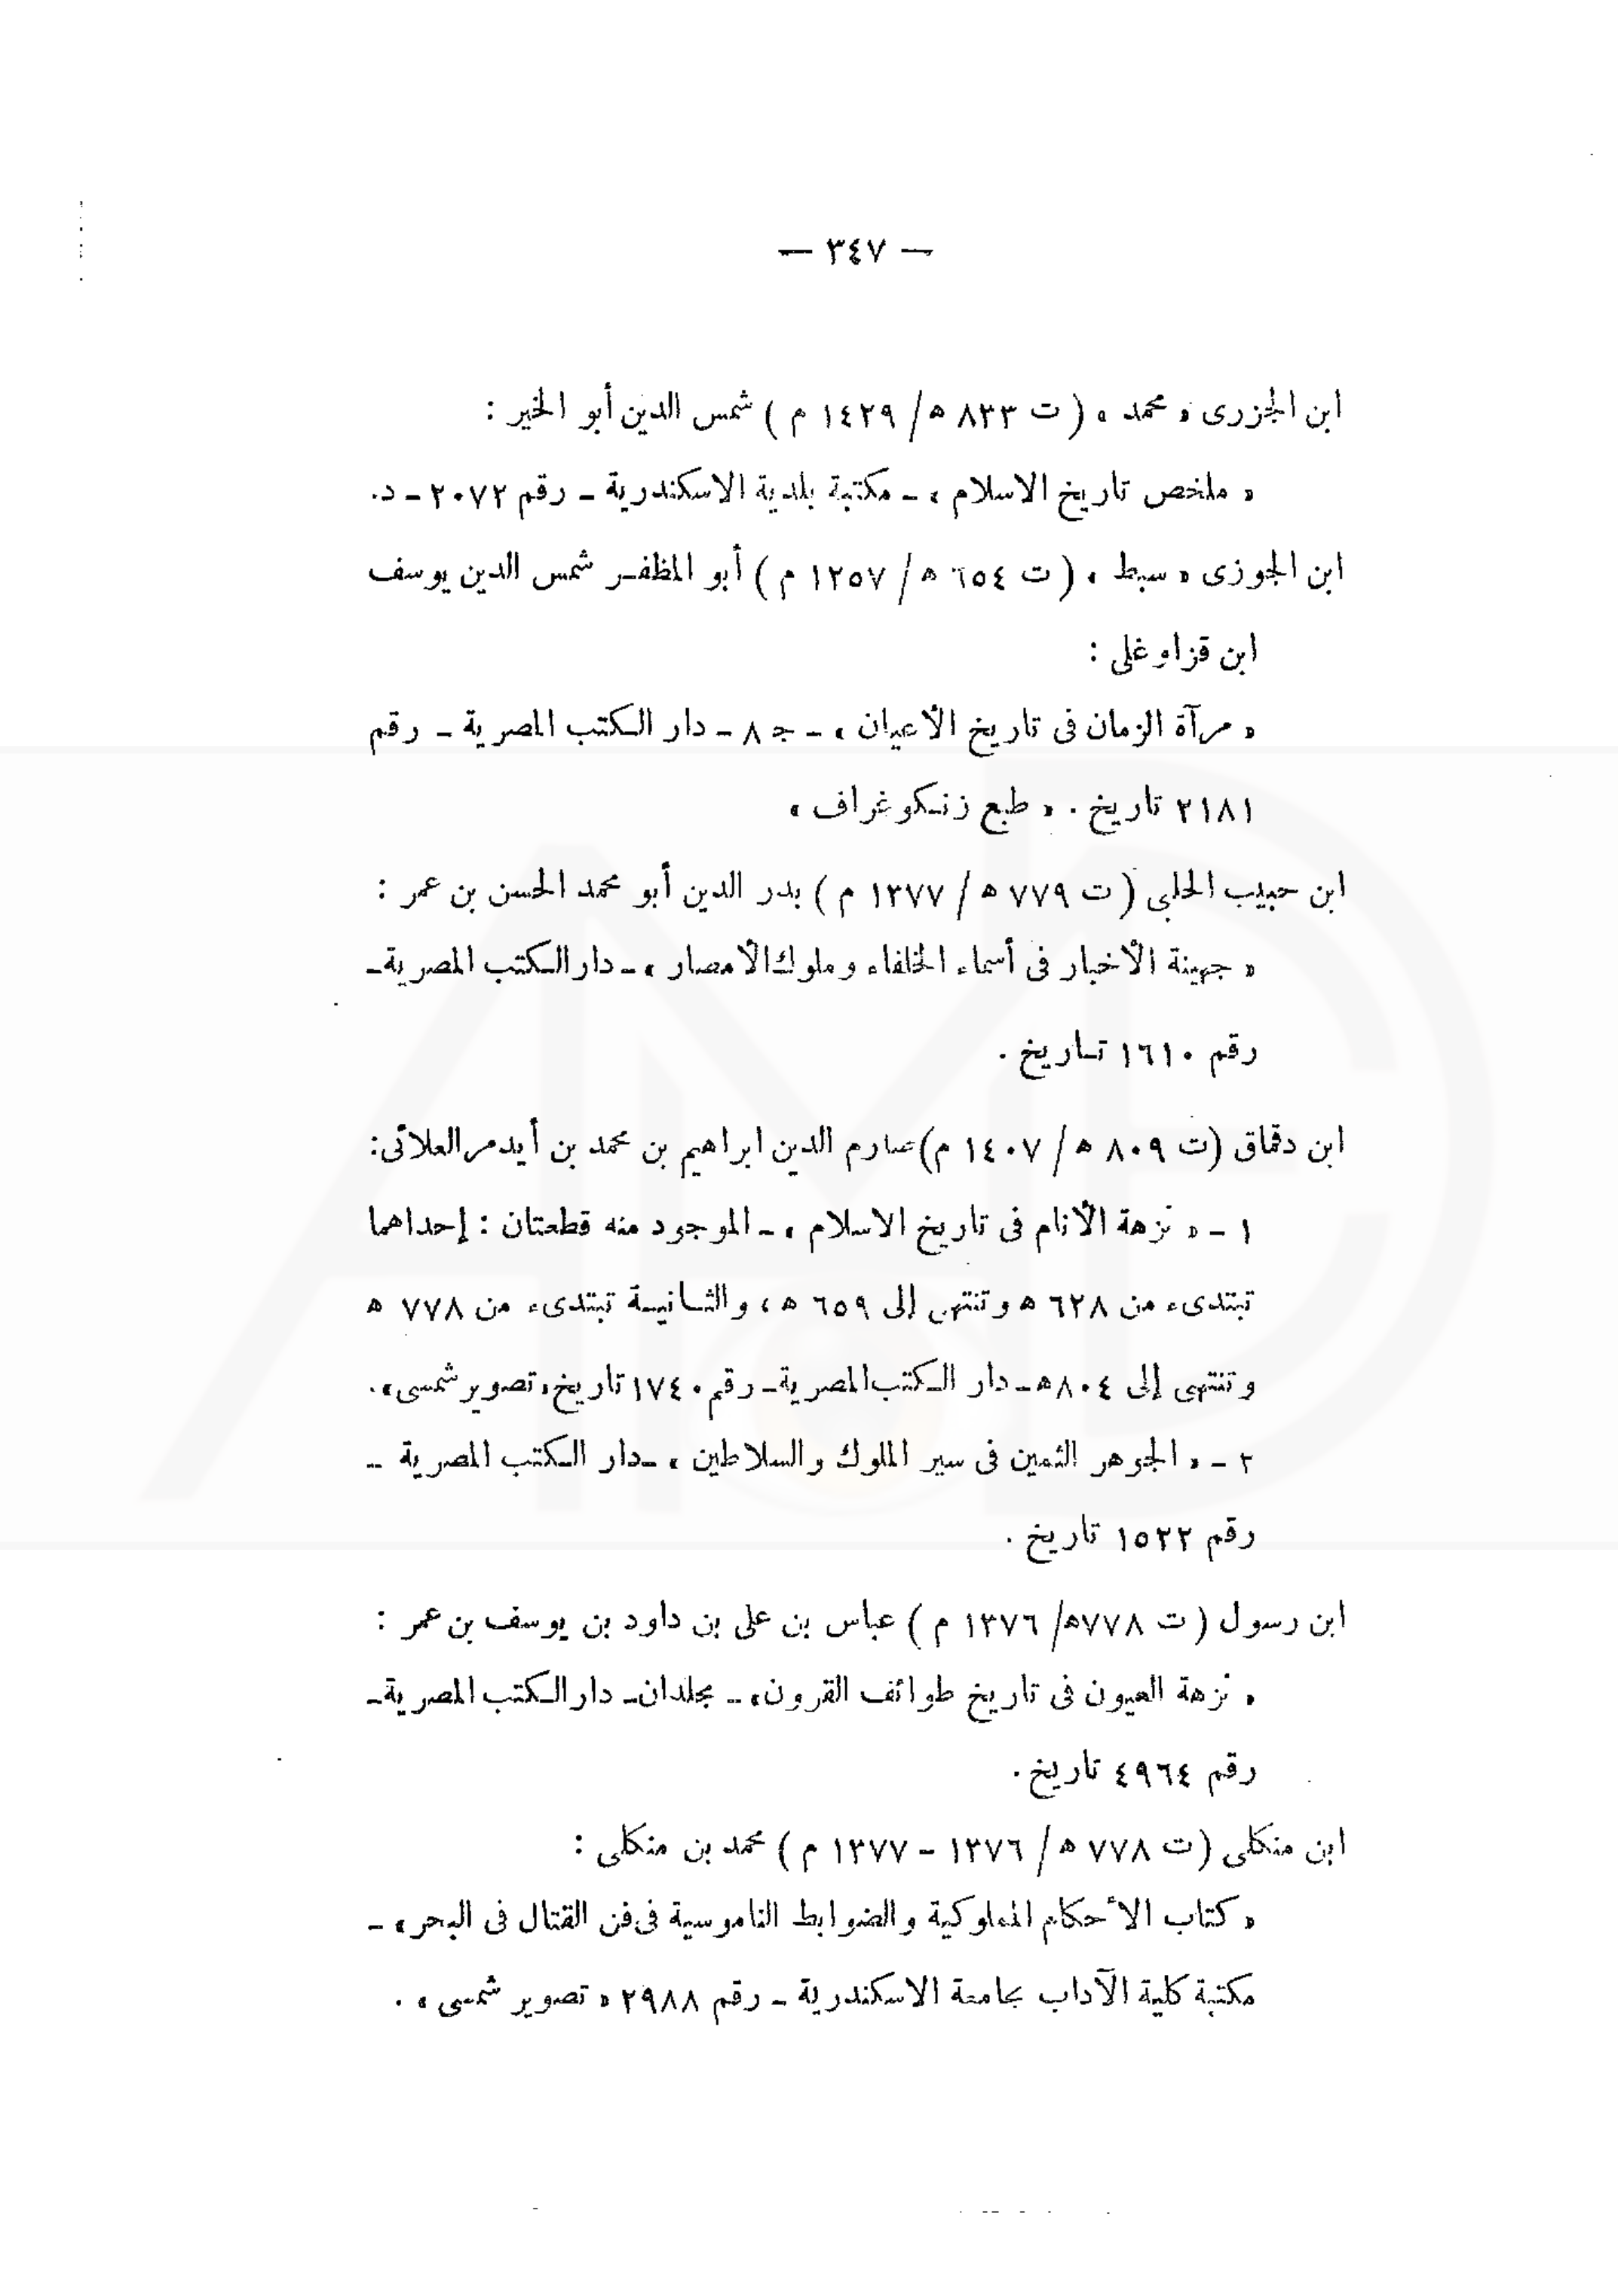 — ٣٤٧ —
ابن الجزرى « محمد » ( ت ٨٣٣ ه / ١٤٢٩ م ) شمس الدين أبو الخير :
« ملخص تاريخ الاسلام » ـ مكتبة بلدية الاسكندرية ـ رقم ٢٠٧٢ ـ د.
ابن الجوزى « سبط » ( ت ٦٥٤ ه / ١٢٥٧ م ) أبو المظفر شمس الدين يوسف
ابن قزاوغلى :
« مرآة الزمان فى تاريخ الأعيان » ـ ج ٨ ـ دار الكتب المصرية ـ رقم
٢١٨١ تاريخ . « طبع زنكوغراف »
ابن حبيب الحلبى ( ت ٧٧٩ ه / ١٣٧٧ م ) بدر الدين أبو محمد الحسن بن عمر :
« جهينة الأخبار فى أسماء الخلفاء وملوك الأمصار » ـ دار الكتب المصرية ـ
رقم ١٦١٠ تاريخ .
ابن دقماق (ت ٨٠٩ ه / ١٤٠٧ م) صارم الدين ابراهيم بن محمد بن أيدمر العلائى:
١ ـ « نزهة الأنام فى تاريخ الاسلام » ـ الموجود منه قطعتان : إحداهما
تبتدىء من ٦٢٨ ه وتنتهى إلى ٦٥٩ ه ، والثانية تبتدىء من ٧٧٨ ه
وتنتهى إلى ٨٠٤ه ـ دار الكتب المصرية ـ رقم ١٧٤٠ تاريخ «تصوير شمسى».
٢ ـ « الجوهر الثمين فى سير الملوك والسلاطين » ـ دار الكتب المصرية ـ
رقم ١٥٢٢ تاريخ .
ابن رسول ( ت ٧٧٨ه/ ١٣٧٦ م ) عباس بن على بن داود بن يوسف بن عمر :
« نزهة العيون فى تاريخ طوائف القرون» ـ مجلدان ـ دار الكتب المصرية ـ
رقم ٤٩٦٤ تاريخ .
ابن منكلى ( ت ٧٧٨ ه / ١٣٧٦ ـ ١٣٧٧ م ) محمد بن منكلى :
« كتاب الأحكام المملوكية والضوابط الناموسية فى فن القتال فى البحر » ـ
مكتبة كلية الآداب بجامعة الاسكندرية ـ رقم ٢٩٨٨ « تصوير شمسى » .